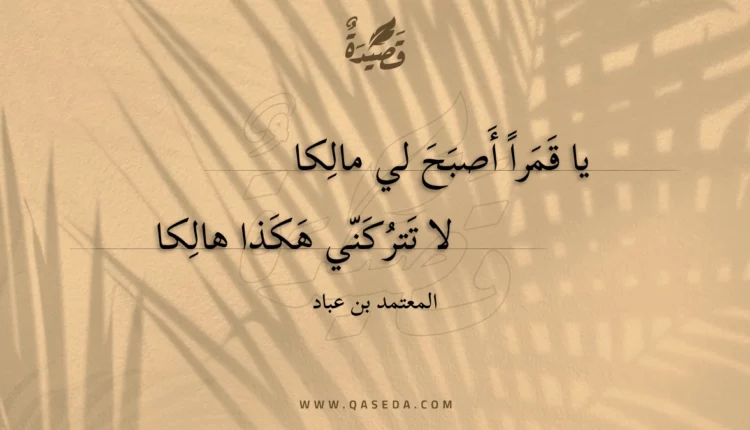 قَصِيْدَةٌ
يا قَمَراً أَصبَحَ لي مالِكا
لا تَترُكَنّي هَكَذا هالِكا
المعتمد بن عباد
WWW.QASEDA.COM